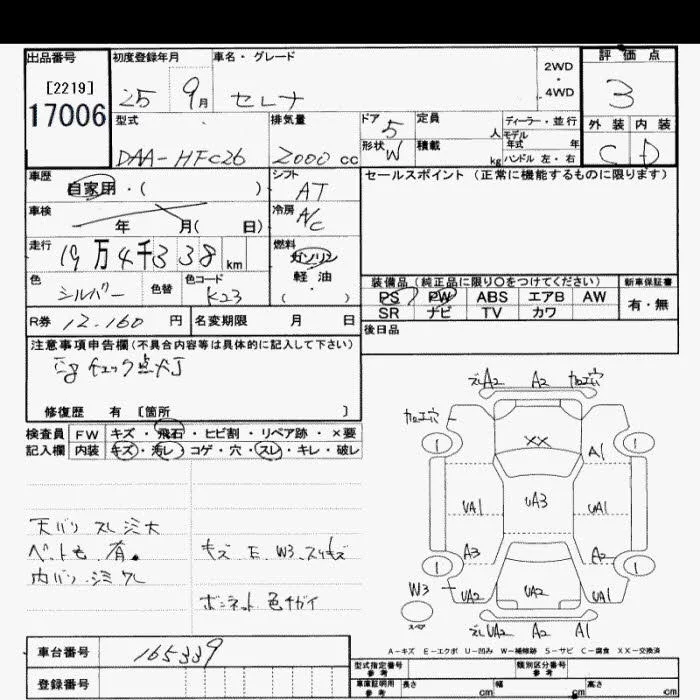 出品番号 初度登録年月 車名・グレード 2WD・4WD 評価点
[2219]
17006 25 9月 セレナ 3
型式 排気量 ドア 5 定員 人 ディーラー・並行 外装 内装
モデル年式 年
DAA-HFC26 2000cc 形状 W 積載 kg ハンドル 左・右 C D
車歴 自家用・( ) シフト AT セールスポイント (正常に機能するものに限ります)
車検 年 月( 日) 冷房 A/C
走行 19万4千338km 燃料 ガソリン
軽油
( )
色 シルバー 色替 色コード K23 装備品 (純正品に限り○をつけてください) 新車保証書
PS PW ABS エアB AW 有・無
SR ナビ TV カワ
R券 12.160円 名変期限 月 日 後日品
注意事項申告欄(不具合内容等は具体的に記入して下さい)
Egチェック点灯
修復歴 有 [箇所 ]
検査員 FW キズ・飛石・ヒビ割・リペア跡・×要
記入欄 内装 キズ・汚レ・コゲ・穴・スレ・キレ・破レ
A2 A2 加工穴
加工穴
1 XX 1
A1
UA1 UA3 UA1
A3 A2
1 1
W3 UA2 UA2 UA1
スペア
UA2 A2 A1
ペットも 有。
キズ E W3 スリキズ
ボンネット 色チガイ
A-キズ E-エクボ U-凹み W-補修跡 S-サビ C-腐食 XX-交換済
車台番号 165339
登録番号
型式指定番号 参考 類別区分番号 参考
車庫証明用 参考 長さ cm 幅 cm 高さ cm